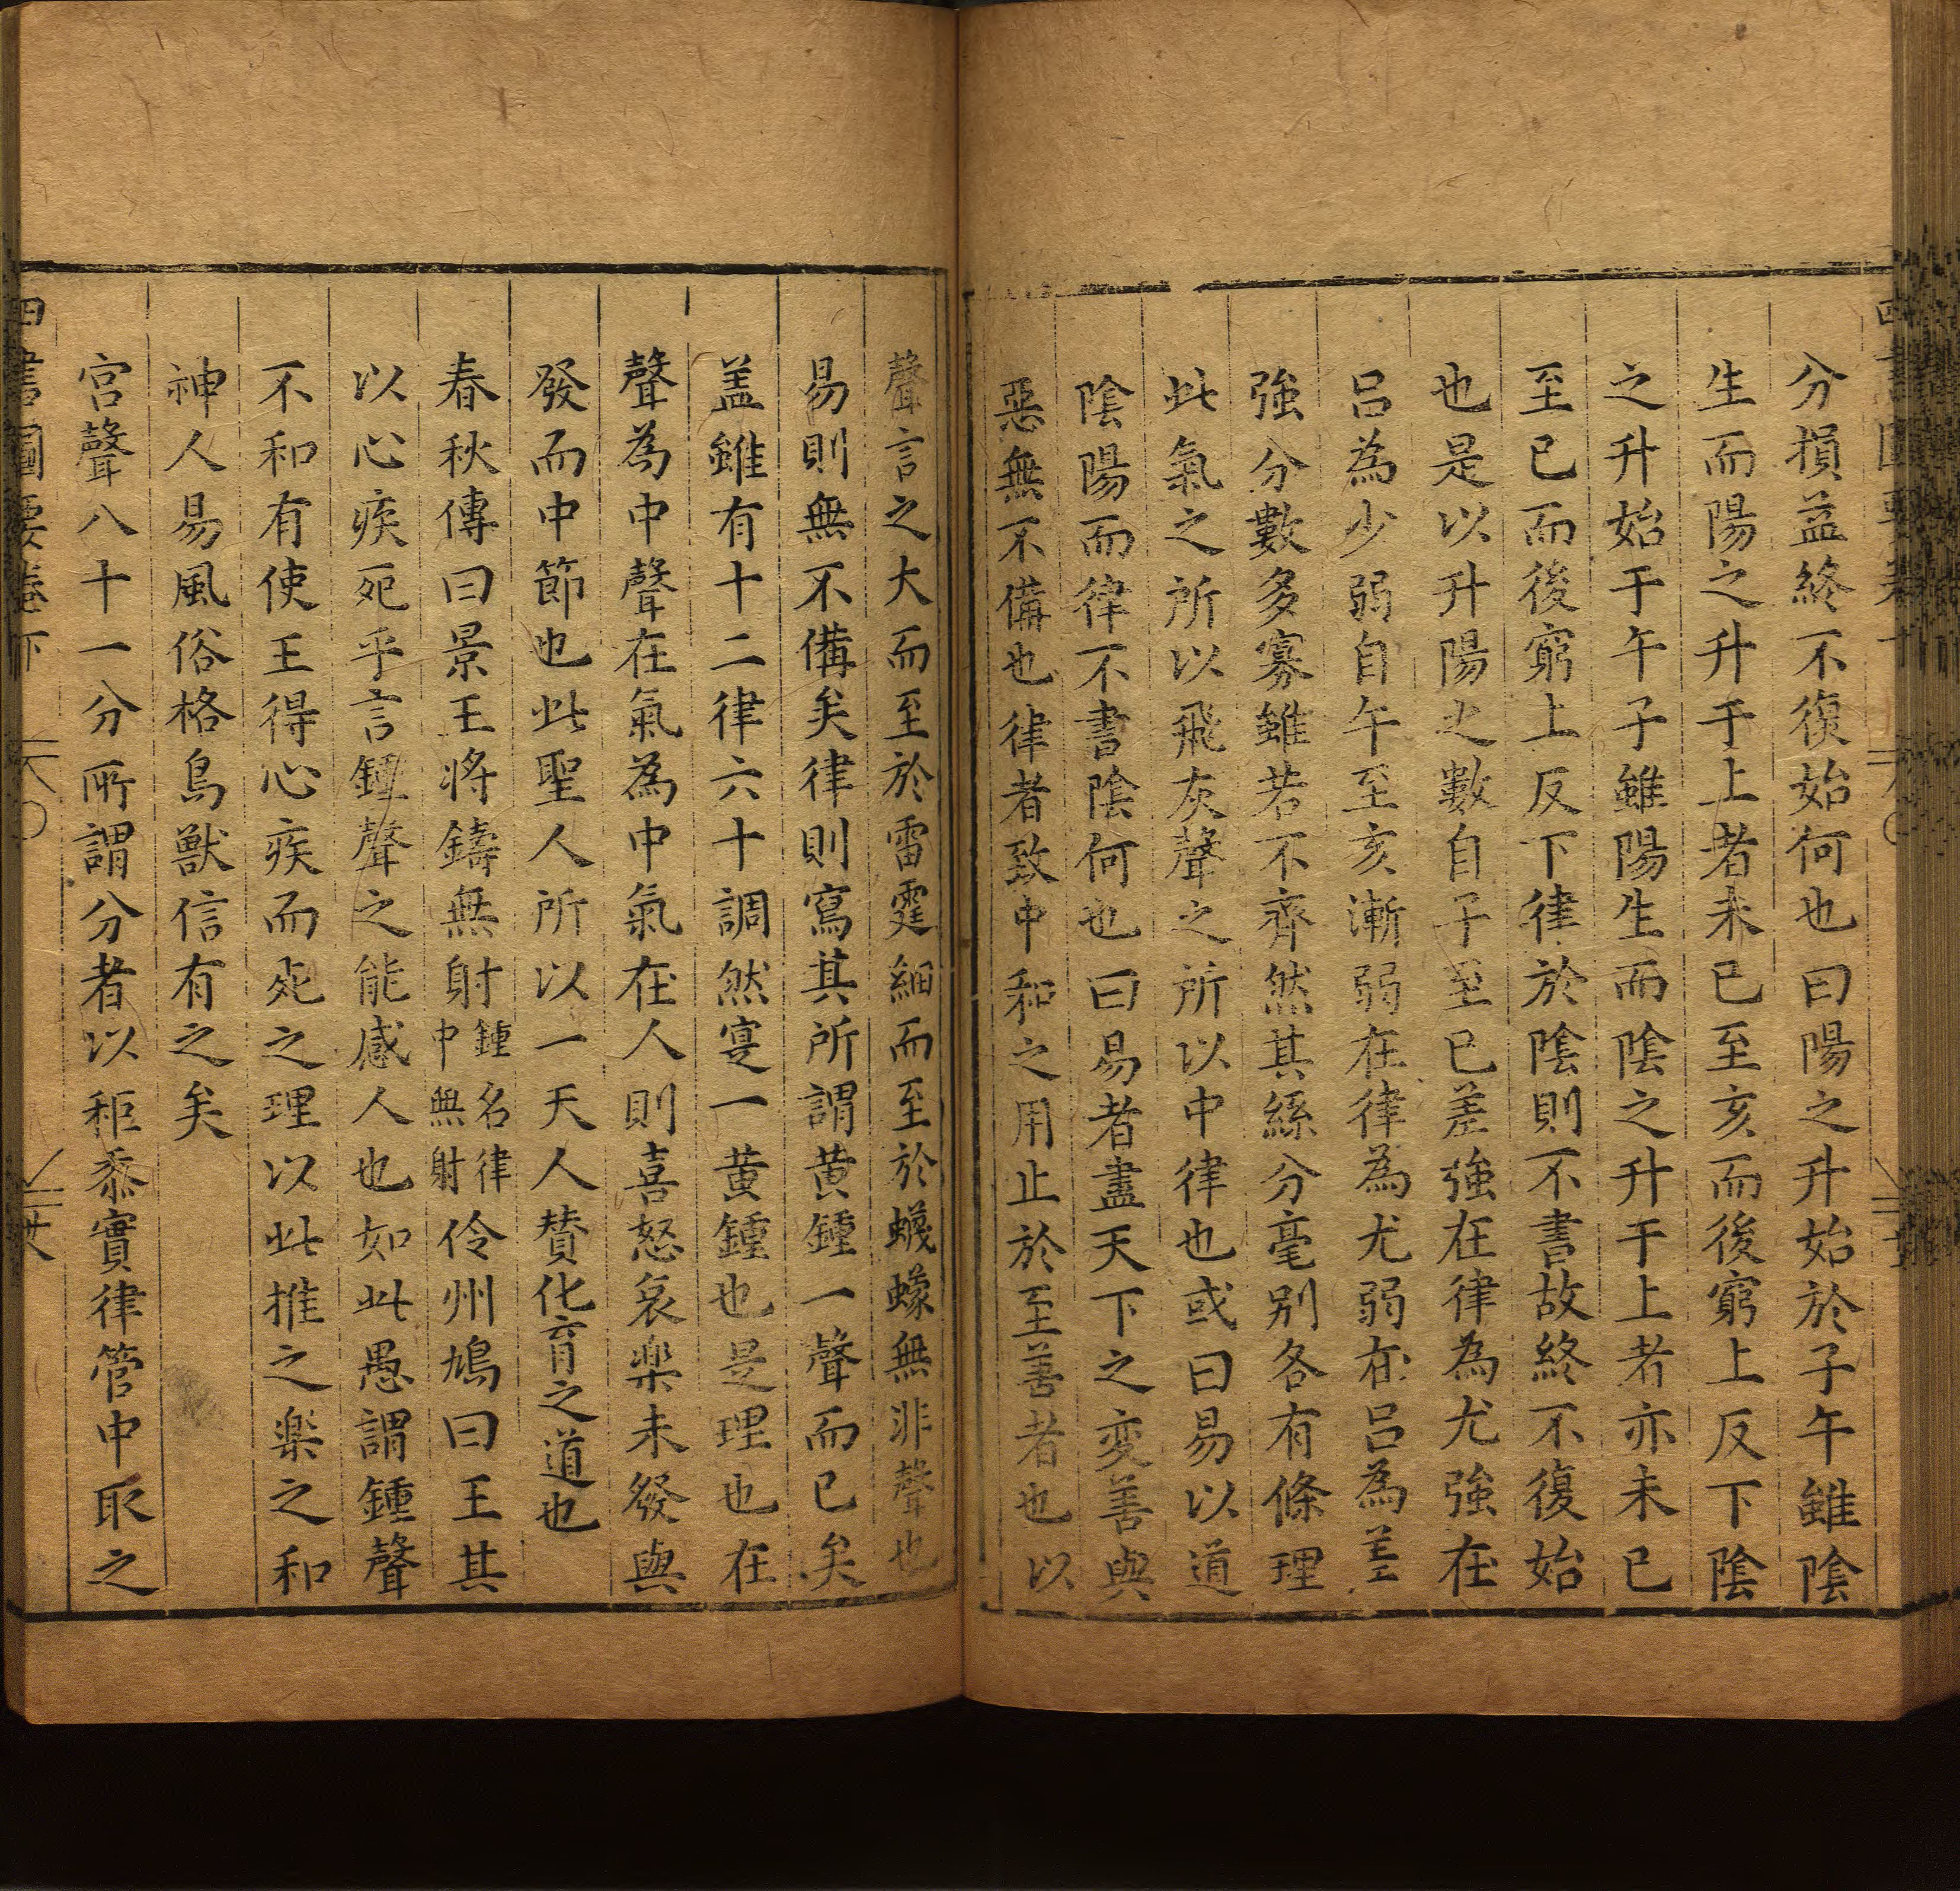 分損益終不復始何也曰陽之升始於子午雖陰
生而陽之升于上者未已至亥而後窮上反下陰
之升始于午子雖陽生而陰之升于上者亦未已
至巳而後窮上反下律於陰則不書故終不復始
也是以升陽之數自子至巳差強在律為尤強在
呂為少弱自午至亥漸弱在律為尤弱在呂為差
強分數多寡雖若不齊然其絲分毫別各有條理
此氣之所以飛灰聲之所以中律也或曰易以道
陰陽而律不書陰何也曰易者盡天下之変善與
惡無不備也律者致中和之用止於至善者也以
聲言之大而至於雷霆細而至於蠛蠓無非聲也
易則無不備矣律則寫其所謂黃鍾一聲而已矣
盖雖有十二律六十調然寔一黃鍾也是理也在
聲為中聲在氣為中氣在人則喜怒哀楽未發與
發而中節也此聖人所以一天人賛化育之道也
春秋傳曰景王将鑄無射鍾名律中無射伶州鳩曰王其
以心疾死乎言鍾聲之能感人也如此愚謂鍾聲
不和有使王得心疾而死之理以此推之楽之和
神人易風俗格鳥獣信有之矣
宮聲八十一分所謂分者以秬黍實律管中取之
四書圖要卷下